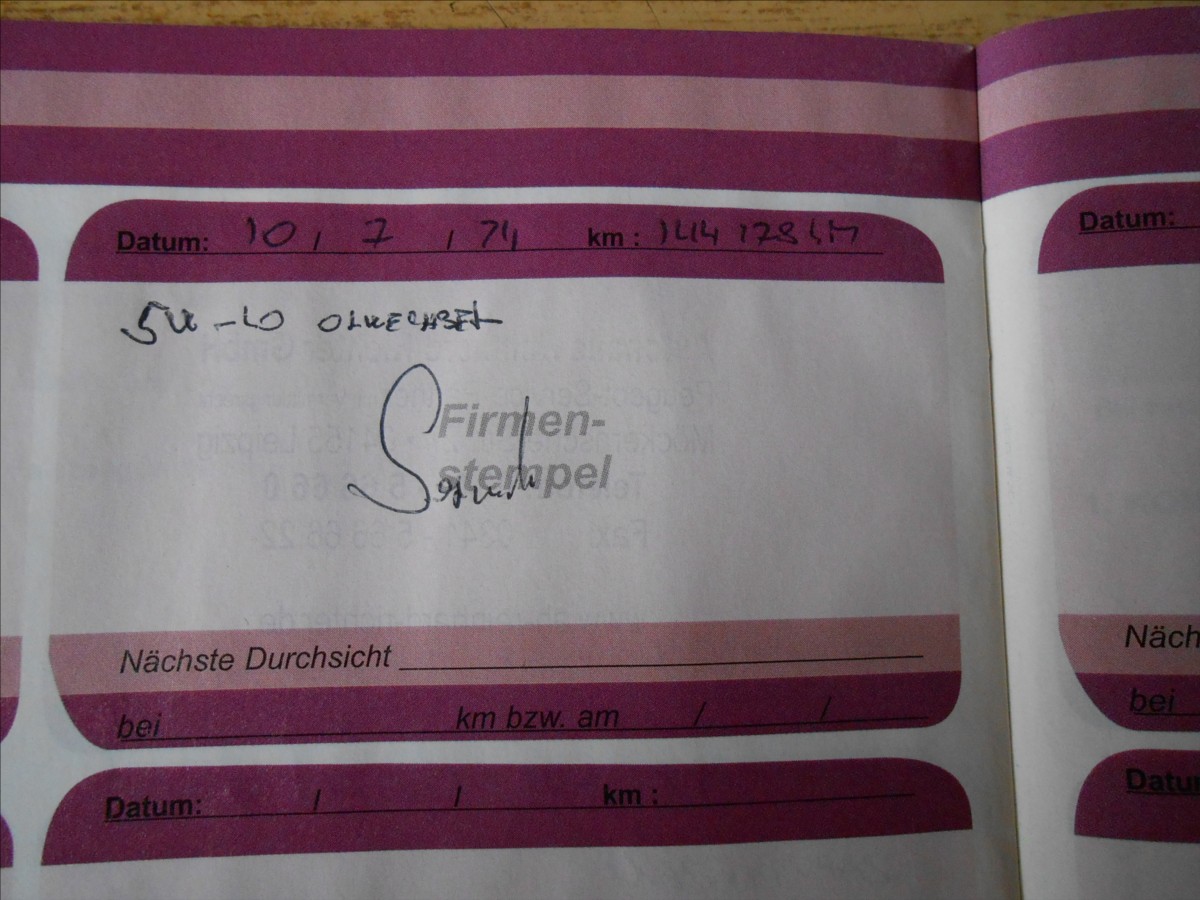 Datum: 10 / 7 / 74 km : 144 178 KM
5W-40 OLWECHSEL
Firmen-
stempel
Nächste Durchsicht
bei km bzw. am / /
Datum: / / km :
Datum:
Näch
bei
Datu